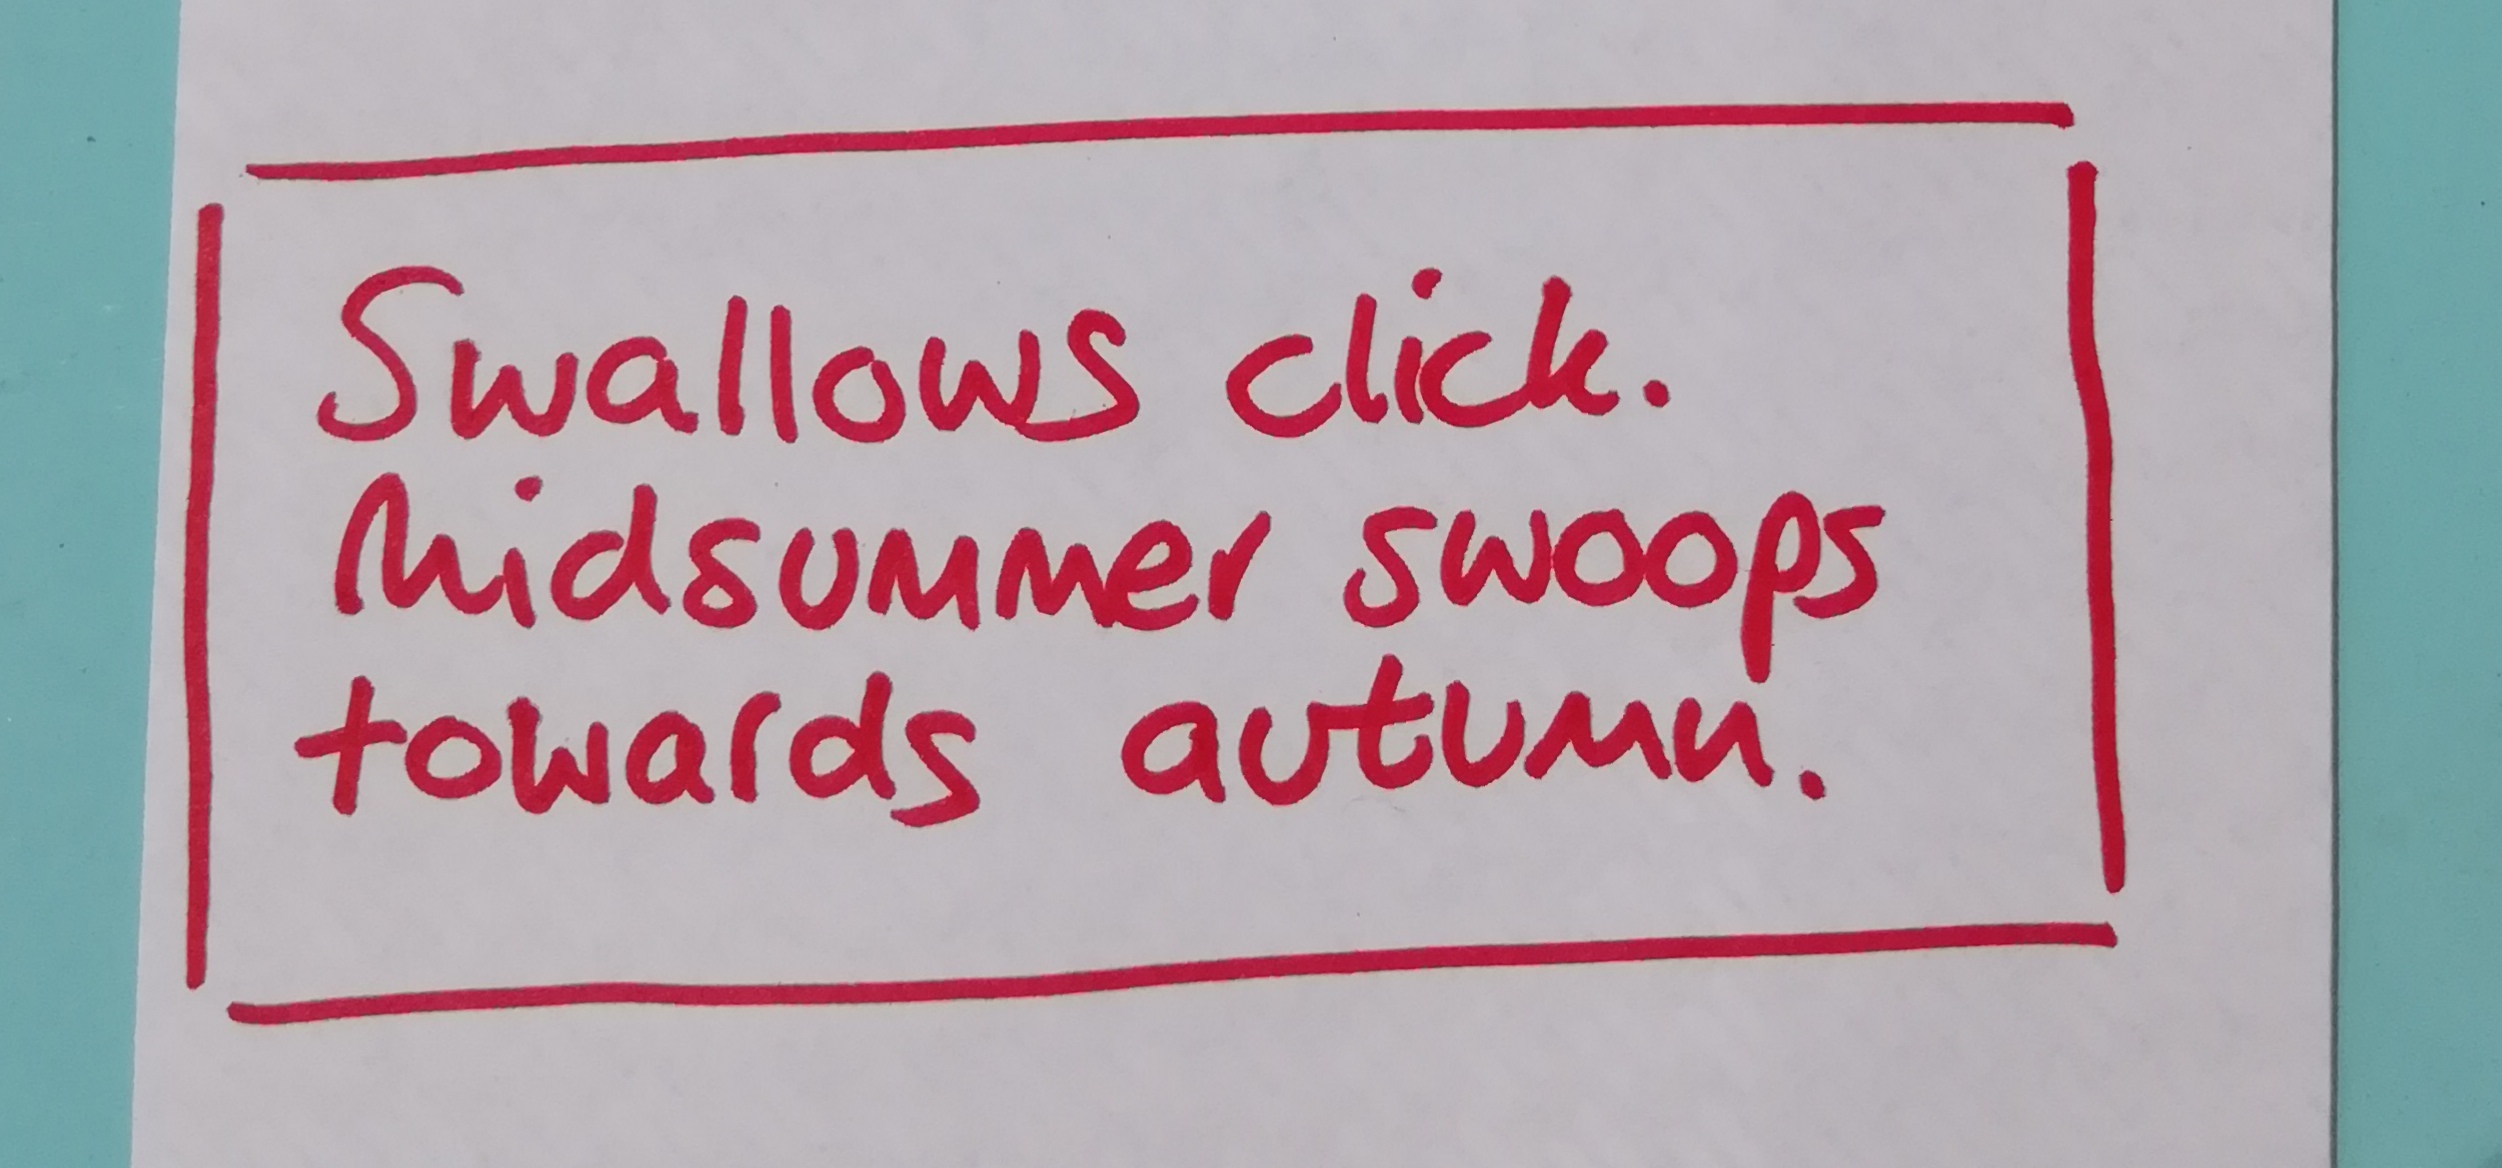 Swallows click.
Midsummer swoops
towards autumn.